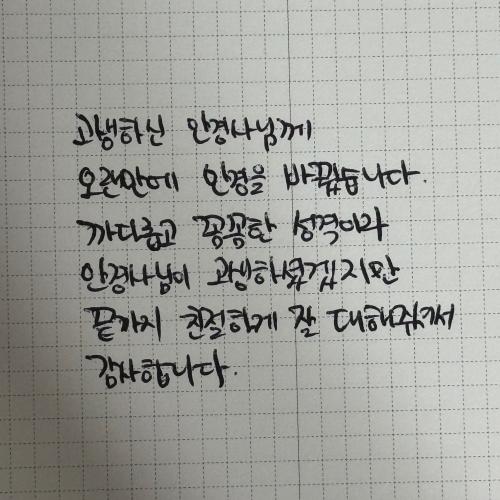 고생하신 안경사님께
오랜만에 안경을 바꿨습니다.
까다롭고 꽁꽁한 성격이라
안경사님이 고생하셨겠지만
끝까지 친절하게 잘 대해주셔서
감사합니다.